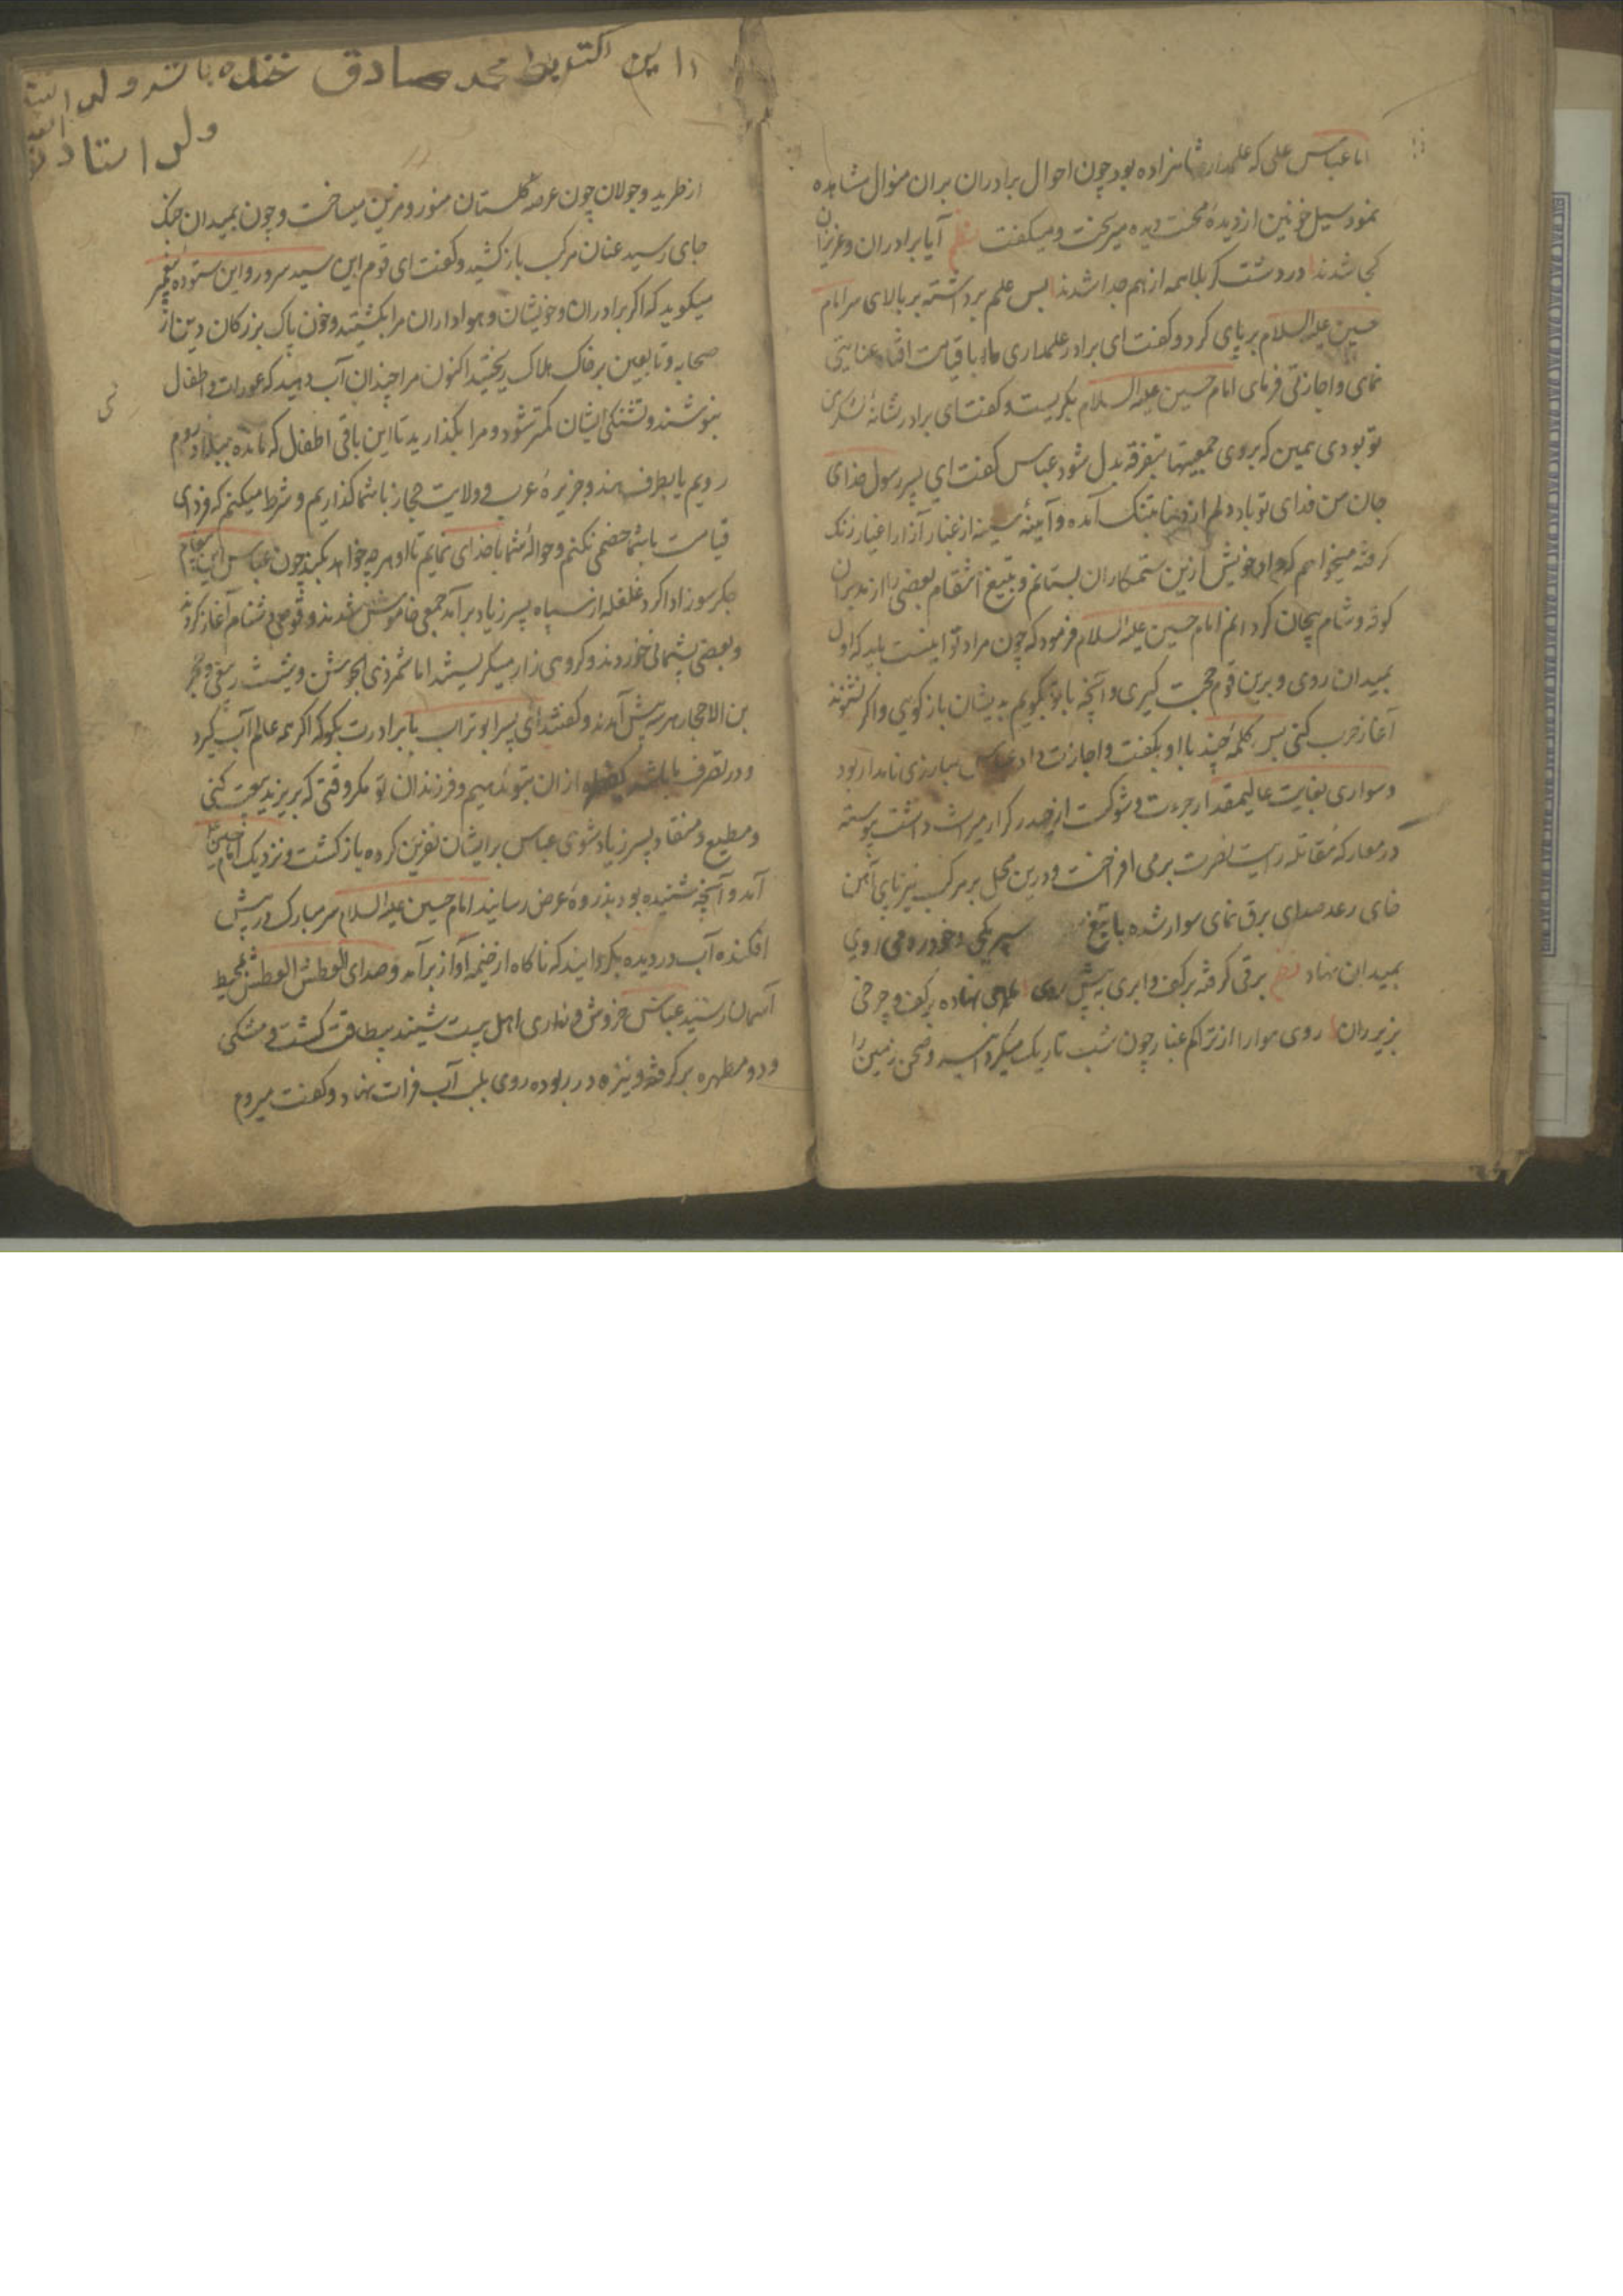 اما عباس علی که علمدار شاهزاده بود چون احوال برادران بران منوال مشاهده
نمود سیل خونین از دیدهٔ محنت دیده میریخت و میکفت نظم آیا برادران و عزیزان
کجا شدند در دشت کربلا همه از هم جدا شدند پس علم برداشته بر بالای سر امام
حسین علیه السلام بر پای کرد و کفت ای برادر علمداری ما با قیامت افتاد عنایتی
نمای و اجازتی فرمای امام حسین علیه السلام بکریست و کفت ای برادر نشانهٔ لشکر من
تو بودی ببین که بروی جمعیتها بتفرقه بدل شود عباس کفت ای پسر رسول خدای
جان من فدای تو باد دلم از دنیا بتنک آمده و آیینهٔ سینه از غبار آزار اغیار زنک
کرفته میخواهم که داد خویش ازین ستمکاران بستانم و بتیغ انتقام بعضی را از مدبران
کوفه و شام بیجان کردانم امام حسین علیه السلام فرمود که چون مراد تو اینست باید که اول
بمیدان روی و برین قوم حجت کیری و آنچه با تو بکویم بدیشان باز کویی و اکر نشنوند
آغاز حرب کنی پس کلمهٔ چند با او بکفت و اجازت داد عباس مبارزی نامدار بود
و سواری بغایت عالیمقدار جرءت و شوکت از حیدر کرار میراث داشت پیوسته
در معارکه مقاتله رایت نصرت برمی افراخت و درین محل بر مرکب تیزتابی آهن
خای رعد صدای برق نمای سوار شده با تیغ سپر مکی و خود رومی روی
بمیدان نهاد نظم برقی کرفته بر کف و ابری به پیش روی نهاده بر کف و چرخی
بزیر ران روی هوا را از تراکم غبار چون شب تاریک میکردانید و صحن زمین را
ااین محمد صادق خنده باشد ولد
ولد استاد
از طرید و جولان چون عرصهٔ کلستان منور و مزین میساخت و چون بمیدان جنک
جای رسید عنان مرکب باز کشید و کفت ای قوم این سید سرور و این ستوده پیغمبر
میکوید که اکر برادران و خویشان و هواداران مرا بکشتید و خون پاک بزرکان دین از
صحابه و تابعین بر خاک هلاک ریختید اکنون مرا چندان آب دهید که عورات و اطفال
بنوشند و تشنکی ایشان کمتر شود و مرا بکذارید تا این باقی اطفال که مانده ببلاد روم
رویم یا بطرف هند و جزیرهٔ عرب و ولایت حجاز با شما کذاریم و شرط میکنم که فردای
قیامت با شما خصمی نکنم و حوالهٔ شما با خدای نمایم تا او هر چه خواهد بکند چون عباس این پیغام
جکر سوز ادا کرد غلغله از سپاه پسر زیاد برآمد جمعی خاموش شدند و قومی دشنام آغاز کردند
و بعضی پشیمانی خوردند و کروهی زار میکریستند اما شمر ذی الجوشن و شبث ربعی و حجر
بن الاحجار هر سه پیش آمدند و کفتند ای پسر ابوتراب با برادرت بکو که اکر همه عالم آب کیرد
و در تصرف ما باشد یک قطره از آن بتو ندهیم و فرزندان تو مکر وقتی که بر یزید بیعت کنی
و مطیع و منقاد پسر زیاد شوی عباس بر ایشان نفرین کرده باز کشت و نزدیک امام حسین
آمد و آنچه شنیده بود بذروهٔ عرض رسانید امام حسین علیه السلام سر مبارک در پیش
افکنده آب در دیده بکردانید که ناکاه از خیمه آواز برآمد و صدای العطش العطش بمحیط
آسمان رسید عباس خروش و زاری اهل بیت شنیده بیطاقت کشت و مشکی
و دو مطهره برکرفته و نیزه در ربوده روی بلب آب فرات نهاد و کفت میروم